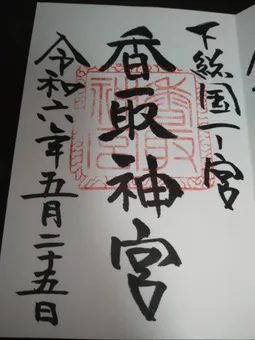 下総国一宮
香取神宮
令和六年五月二十五日